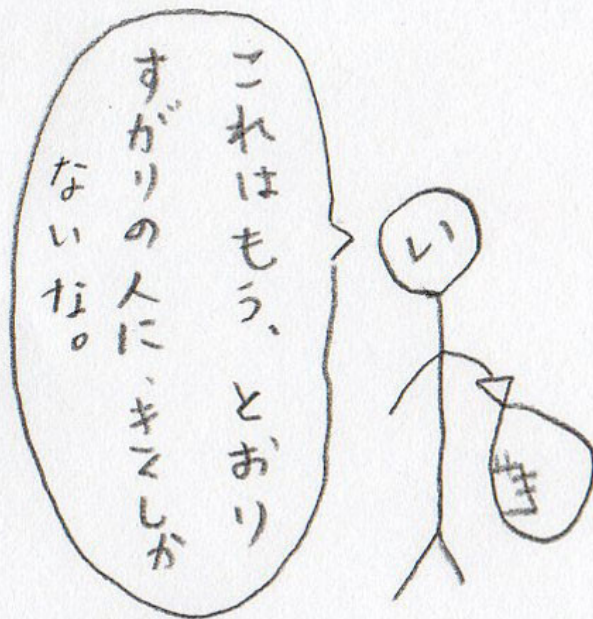 これはもう、とおり
すがりの人に、きくしか
ないな。
い
き